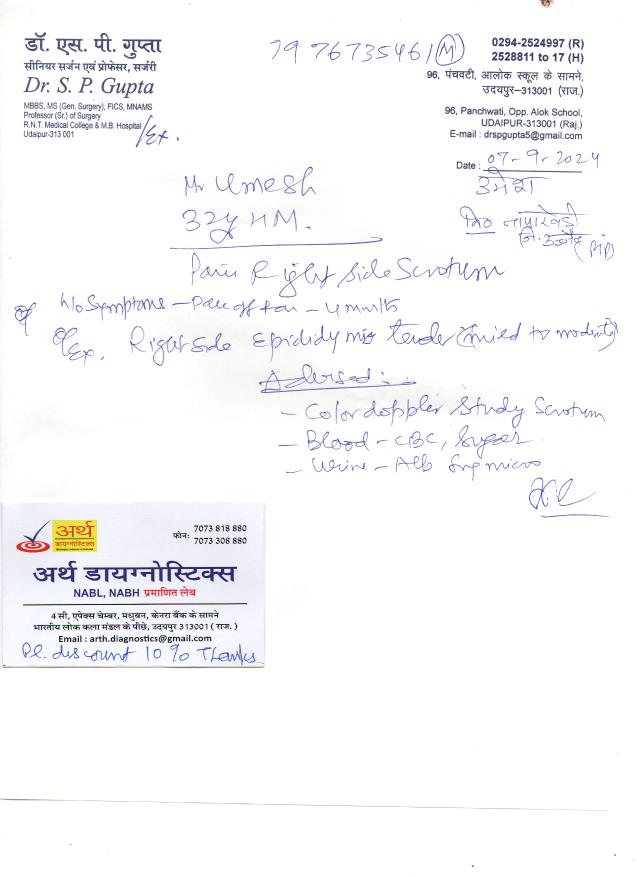 डॉ. एस. पी. गुप्ता
सीनियर सर्जन एवं प्रोफेसर, सर्जरी
Dr. S. P. Gupta
MBBS, MS (Gen. Surgery), FICS, MNAMS
Professor (Sr.) of Surgery
R.N.T. Medical College & M.B. Hospital
Udaipur-313 001
/Ex.
7976735461 (M)
0294-2524997 (R)
2528811 to 17 (H)
96, पंचवटी, आलोक स्कूल के सामने,
उदयपुर–313001 (राज.)
96, Panchwati, Opp. Alok School,
UDAIPUR-313001 (Raj.)
E-mail : drspgupta5@gmail.com
Date : 07-9-2024
Mr Umesh
उमेश
32y HM.
Pain Right side Scrotum
h/o Symptoms – - 4 mnth
O/Ex. Right side Epididymis tender (mild to moderate)
Advised :-
- Color doppler Study Scrotum
- Blood - CBC, Sugar
- Urine - Alb Sug micro
अर्थ
डायग्नोस्टिक्स
फोन: 7073 818 880
7073 308 880
अर्थ डायग्नोस्टिक्स
NABL, NABH प्रमाणित लेब
4 सी, एपेक्स चेम्बर, मधुबन, केनरा बैंक के सामने
भारतीय लोक कला मंडल के पीछे, उदयपुर 313001 ( राज. )
Email : arth.diagnostics@gmail.com
Pl. discount 10 % Thanks